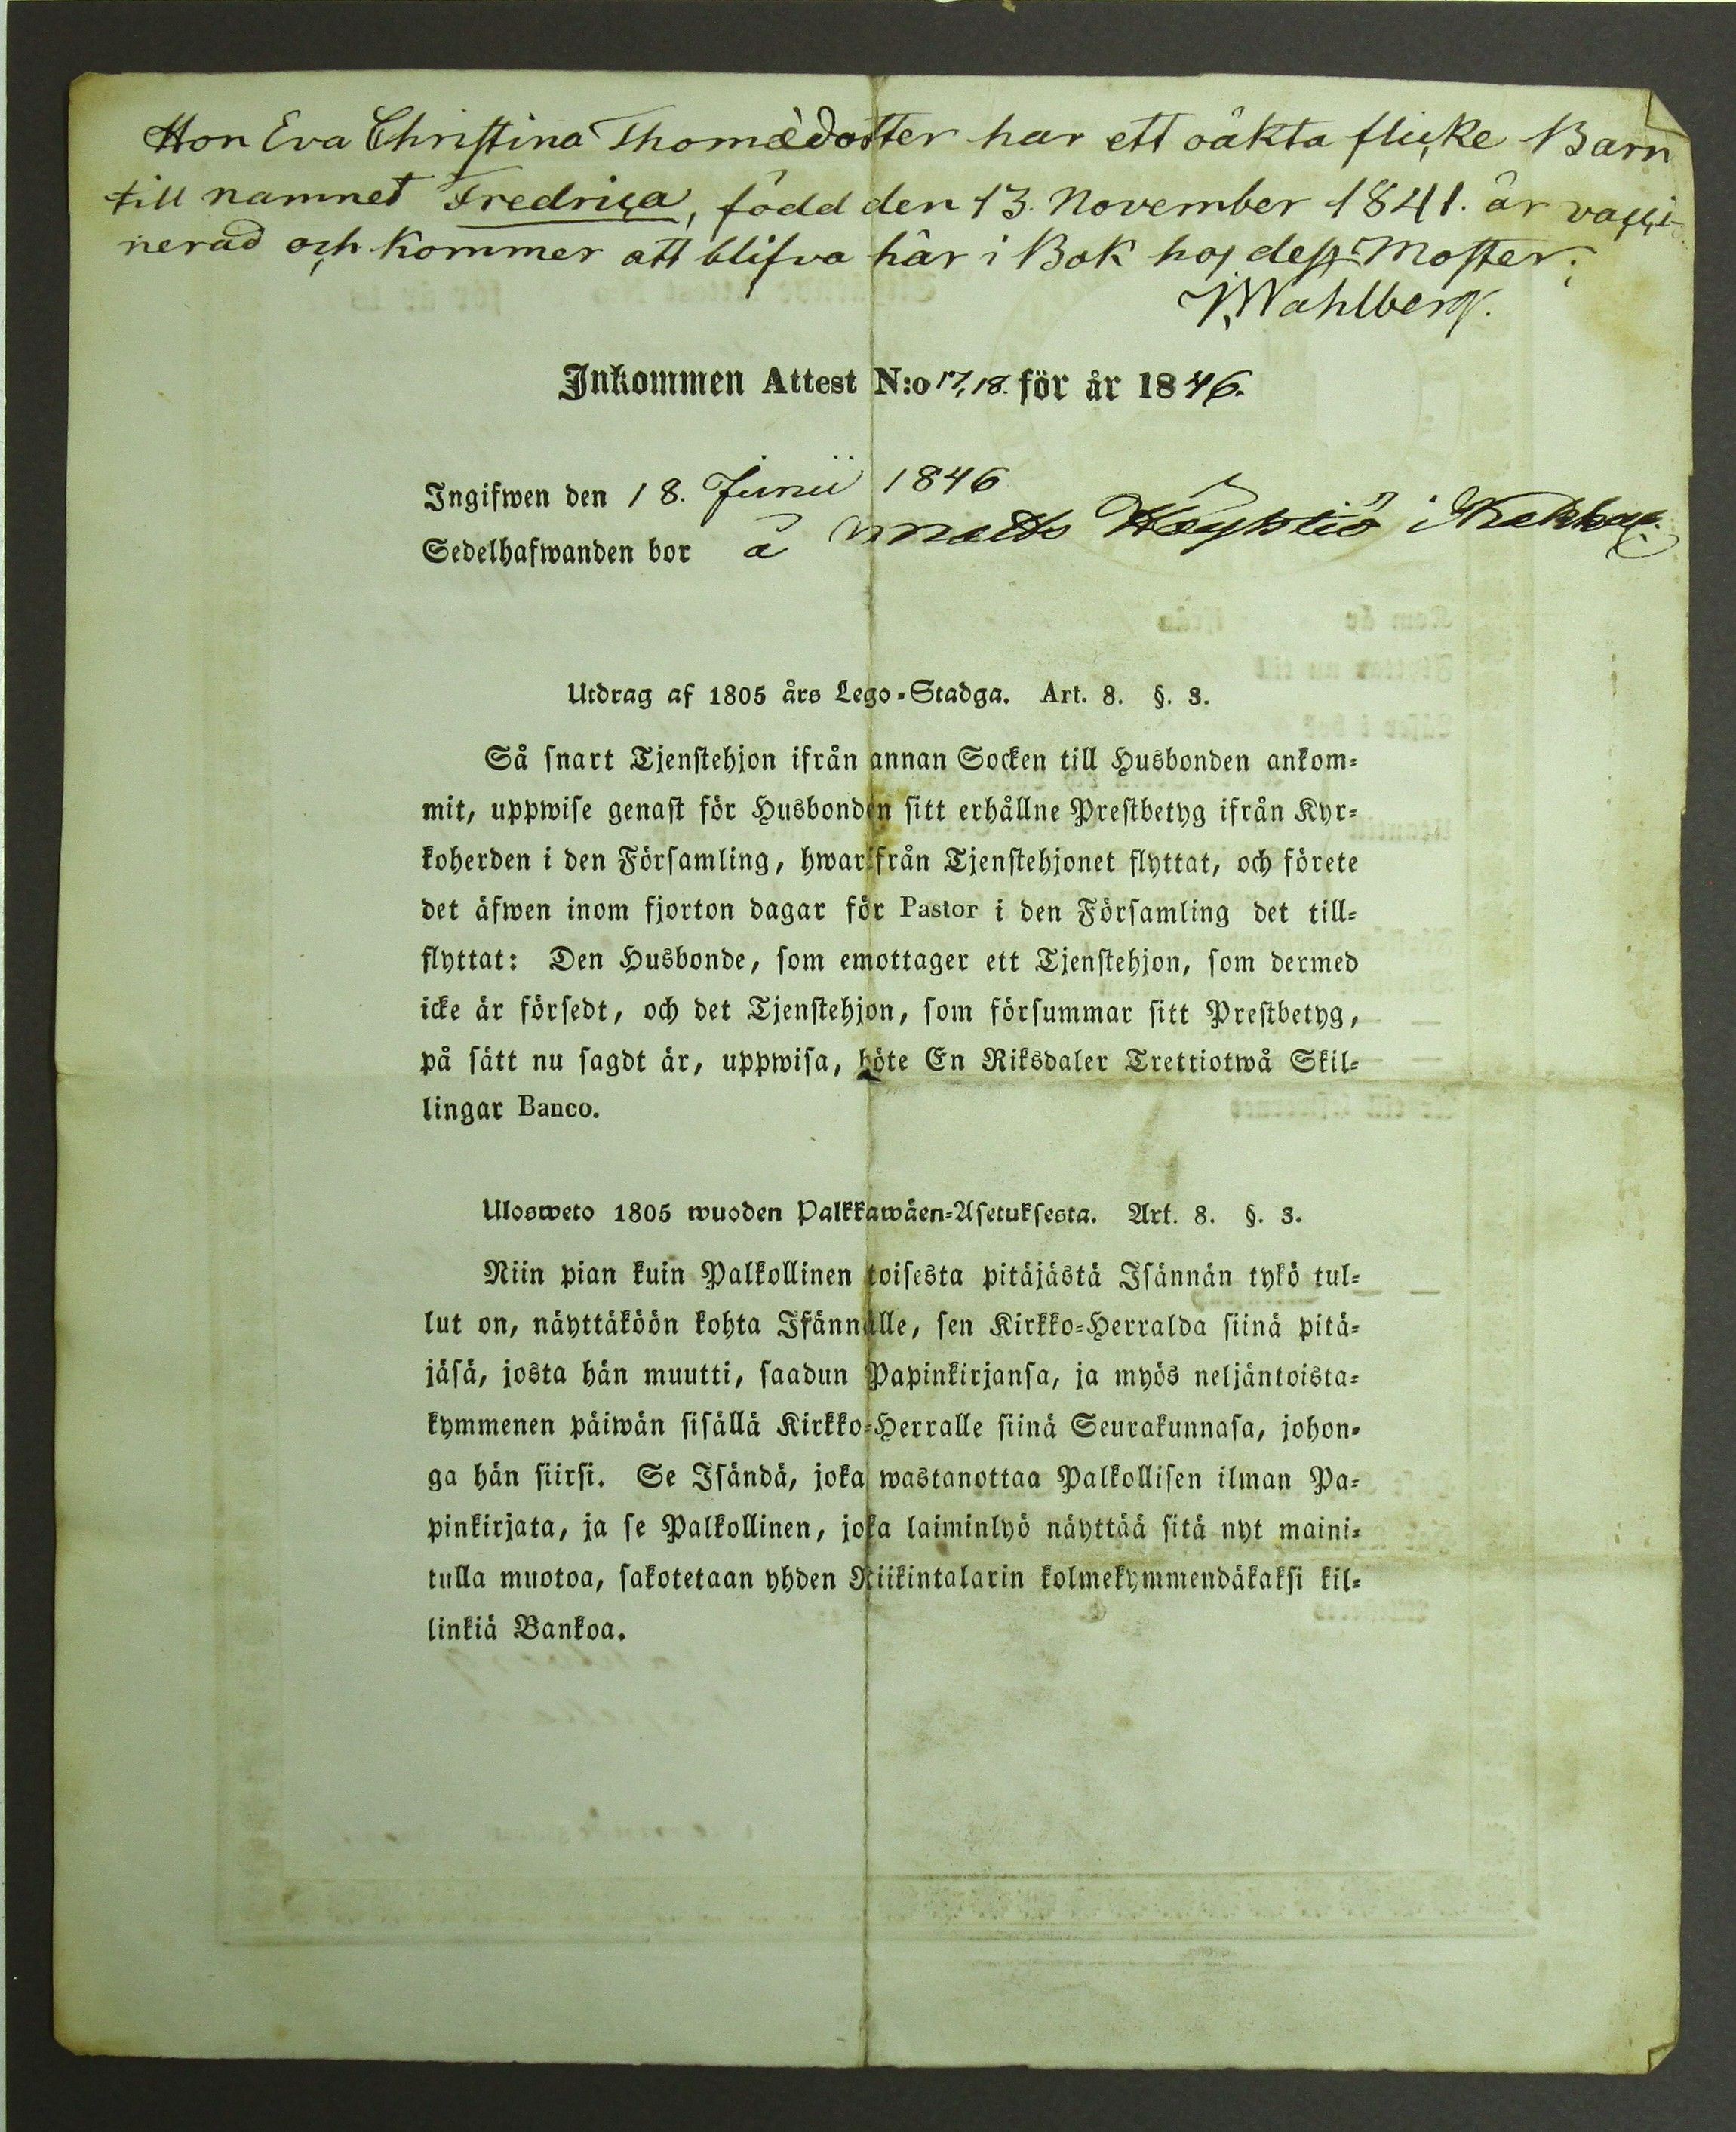 Hon Eva Christina Thomædotter har ett oäkta flicke Barn
till namnet Fredrica, född den 13. November 1841. är vacci-
nerad och kommer att blifva här i Bok hos dess Moster.
Wahlberg.
Inkommen Attest N:o 17,18. för år 1846.
Ingifwen den 18. Junii 1846
Sedelhafwanden bor å Matts Köykkiö i
Utdrag af 1805 års Lego-Stadga. Art. 8. §. 3.
Så snart Tjenstehjon ifrån annan Socken till Husbonden ankom-
mit, uppwise genast för Husbonden sitt erhållne Prestbetyg ifrån Kyr-
koherden i den Församling, hwarifrån Tjenstehjonet flyttat, och förete
det äfwen inom fjorton dagar för Pastor i den Församling det till-
flyttat: Den Husbonde, som emottager ett Tjenstehjon, som dermed
icke är försedt, och det Tjenstehjon, som försummar sitt Prestbetyg,
på sätt nu sagdt är, uppwisa, böte En Riksdaler Trettiotwå Skil-
lingar Banco.
Ulosweto 1805 wuoden Palkkawäen-Asetuksesta. Art. 8. §. 3.
Niin pian kuin Palkollinen toisesta pitäjästä Isännän tykö tul-
lut on, näyttäköön kohta Isännälle, sen Kirkko-Herralda siinä pitä-
jäsä, josta hän muutti, saadun Papinkirjansa, ja myös neljäntoista-
kymmenen päiwän sisällä Kirkko-Herralle siinä Seurakunnasa, johon-
ga hän siirsi. Se Isändä, joka wastanottaa Palkollisen ilman Pa-
pinkirjata, ja se Palkollinen, joka laiminlyö näyttää sitä nyt maini-
tulla muotoa, sakotetaan yhden Riikintalarin kolmekymmendäkaksi kil-
linkiä Bankoa.